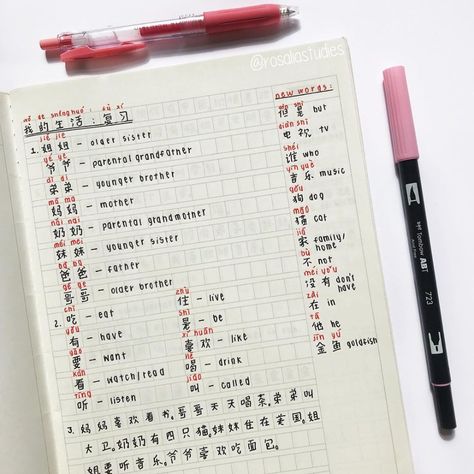 @rosaliastudies
wǒ de shēng huó : fù xí
我的生活：复习
jiě jie
1. 姐姐 - older sister
yé ye
爷爷 - parental grandfather
dì di
弟弟 - younger brother
mā ma
妈妈 - mother
nǎi nai
奶奶 - parental grandmother
mèi mei
妹妹 - younger sister
bà ba
爸爸 - father
gē ge
哥哥 - older brother
chī
2. 吃 - eat
yǒu
有 - have
yào
要 - want
kàn
看 - watch/read
tīng
听 - listen
zhù
住 - live
shì
是 - be
xǐ huān
喜欢 - like
hē
喝 - drink
jiào
叫 - called
3. 妈妈喜欢看书。哥哥天天喝茶。弟弟叫
大卫。奶奶有四只猫。妹妹住在英国。姐
姐要听音乐。爷爷喜欢吃面包。
new words:
dàn shì
但是 but
diàn shì
电视 TV
shéi
谁 who
yīn yuè
音乐 music
gǒu
狗 dog
māo
猫 cat
jiā
家 family/
home
bù
不 not
méi yǒu
没有 don't
have
zài
在 in
tā
他 he
jīn yú
金鱼 goldfish
Tombow
ABT
723